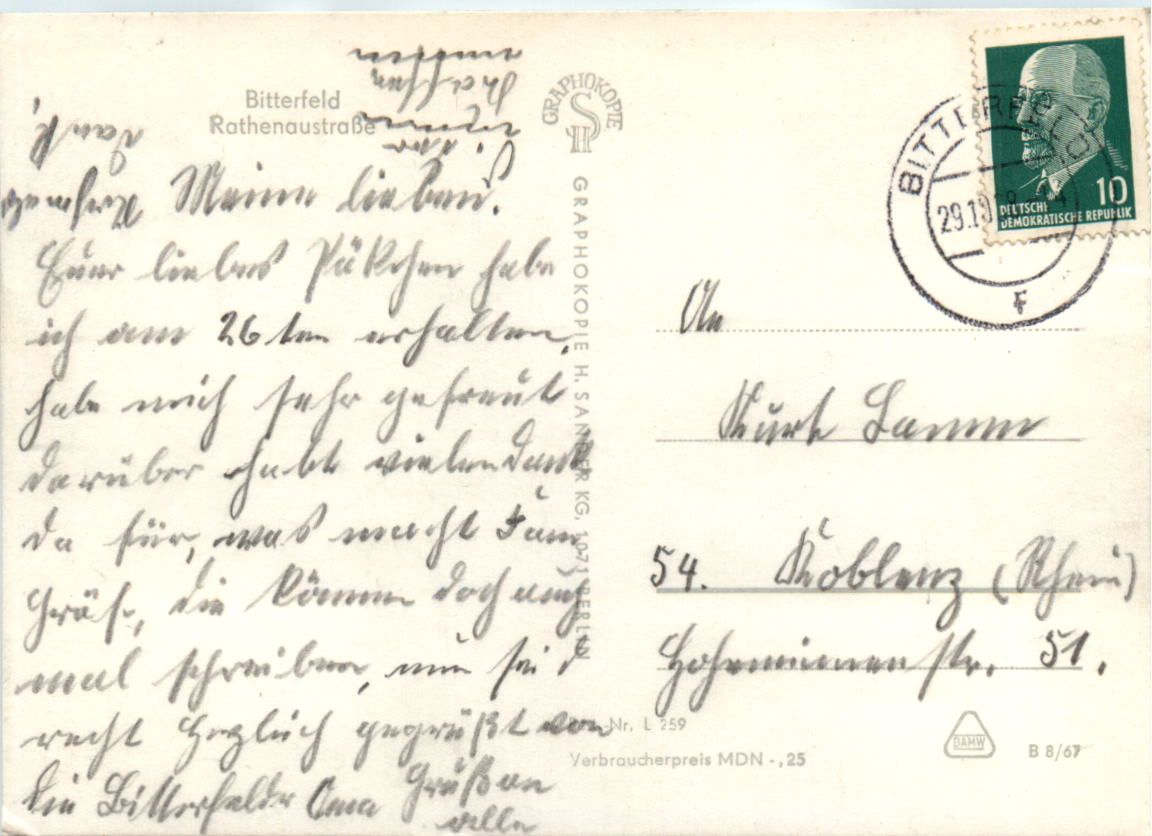 Bitterfeld
Rathenaustraße
Meine lieben.
Euer liebes Päkchen habe
ich am 26ten erhalten,
habe mich sehr gefreut
darüber habt vielen Dank
da für, was macht Fam
Gräf, die können doch auch
mal schreiben, nun seid
recht herzlich gegrüßt von
die Bitterfelder Oma
Gruß an
alle
GRAPHOKOPIE
H S
GRAPHOKOPIE H. SANDER KG, 1071 BERLIN
BITTERFELD
29.10
F
10
DEUTSCHE
DEMOKRATISCHE REPUBLIK
An
Kurt Lamm
54. Koblenz (Rhein)
Hohenzinnen str. 51.
-Nr. L 259
Verbraucherpreis MDN -,25
DAMW
B 8/67